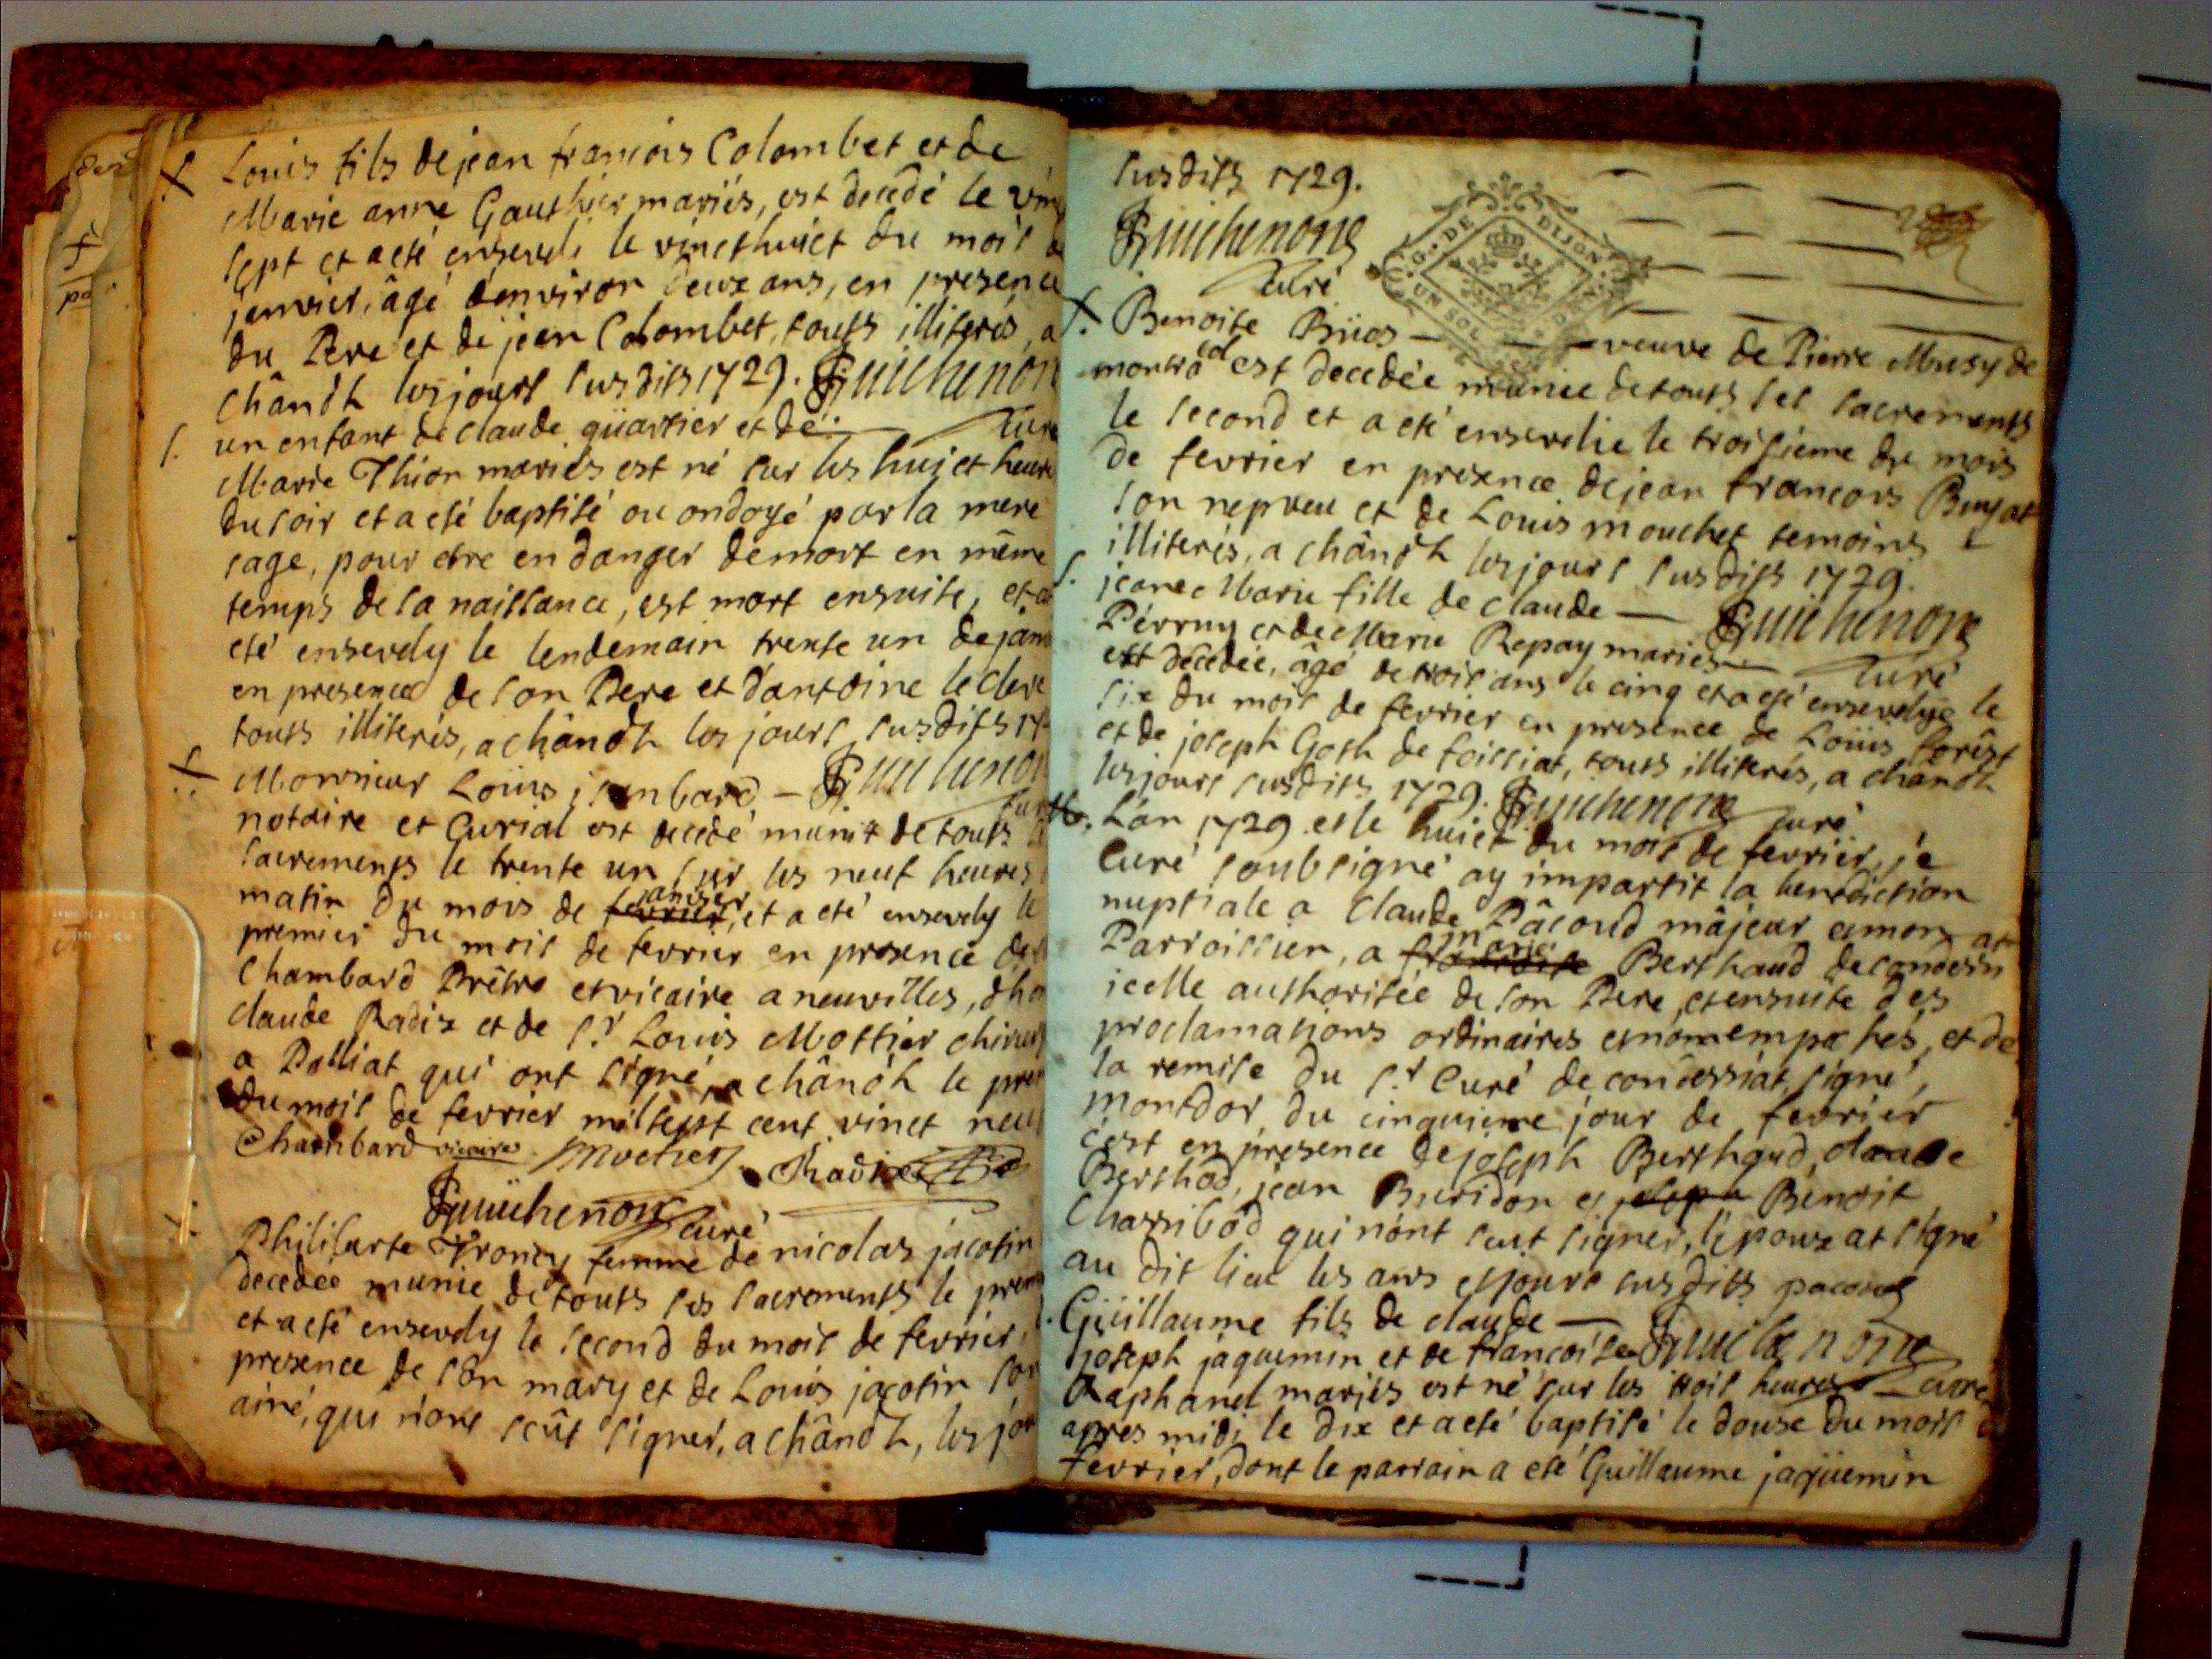 Louis fils de jean francois Colombet et de
Marie anne Gauthier mariés, est decedé le vin
sept et a eté enseveli le vinethuict du mois
janvier, âgé d'environ deux ans, en presence
du Pere et de jean Colombet, touts illiterés, a
chândt les jours susdits 1729. Guichenon
curé
un enfant de claude quartier et de
Marie Thion mariés est né sur les huict heure
du soir et a eté baptisé ou ondoyé par la mere
sage, pour etre en danger de mort en même
temps de sa naissance, est mort ensuite, et a
eté ensevely le lendemain trente un de janv
en presence de son Pere et d'antoine le clerc
touts illiterés, a chândt les jours susdits 17
Monsieur Loüis isambard - Guichenon
curé
notaire et Curial est decedé munit de touts
sacrements le trente un sur les neuf heures
matin du mois de fevrier janvier, et a eté ensevely le
premier du mois de fevrier en presence de
Chambard Prêtre et vicaire a neuvilles, d'ho
claude Radix et de Sr. Louis Mottier chirur
a Polliat qui ont signé, a chândt le prem
du mois de fevrier mil sept cent vinct neu
Chambard vicaire Mottier Radix
Guichenon curé
Philiberte Troncy femme de nicolas jacotin
decedée munie de touts ses sacrements le prem
et a eté ensevely le second du mois de fevrier,
presence de son mary et de Louis jacotin son
ainé, qui n'ont scût signer, a chândt, les jou
susdits 1729.
Guichenon
curé
G. DE DIJON
UN SOL
Benoite Buos — veuve de Pierre Musy de
montracol est decedée munie de touts ses sacrements
le second et a eté ensevelie le troisieme du mois
de fevrier en presence de jean francois Buyat
son nepveu et de Louis mouchet temoins
illiterés, a chândt les jours susdits 1729.
jeane Marie fille de claude — Guichenon
Perruy et de Marie Repay mariés — curé
est decedée, âgé de trois ans le cinq et a eté ensevelye le
six du mois de fevrier en presence de Loüis forêst
et de joseph Goth de foissiat, touts illiterés, a chândt
les jours susdits 1729. Guichenon curé
L'an 1729 et le huict du mois de fevrier, je
Curé soubsigné ay impartit la benediction
nuptiale a Claude Pâcoud mâjeur et mon
Parroissien, a marie Berthaud de
icelle authorisée de son Pere, et ensuite des
proclamations ordinaires et non empeches, et de
la remise du Sr. Curé de condessiat, signé,
montdor, du cinquieme jour de fevrier
c'est en presence de joseph Berthaud, claude
Berthod, jean Buridon et joseph Benoit
Chassibod qui n'ont scut signer, l'epoux at signé
au dit lieu les ans et jours susdits pacoud
Guillaume fils de claude — Guichenon
joseph jaquemin et de francoise
Raphanel mariés est né sur les trois heures curé
apres midi le dix et a eté baptisé le douse du mois de
fevrier, dont le parrain a eté Guillaume jaquemin